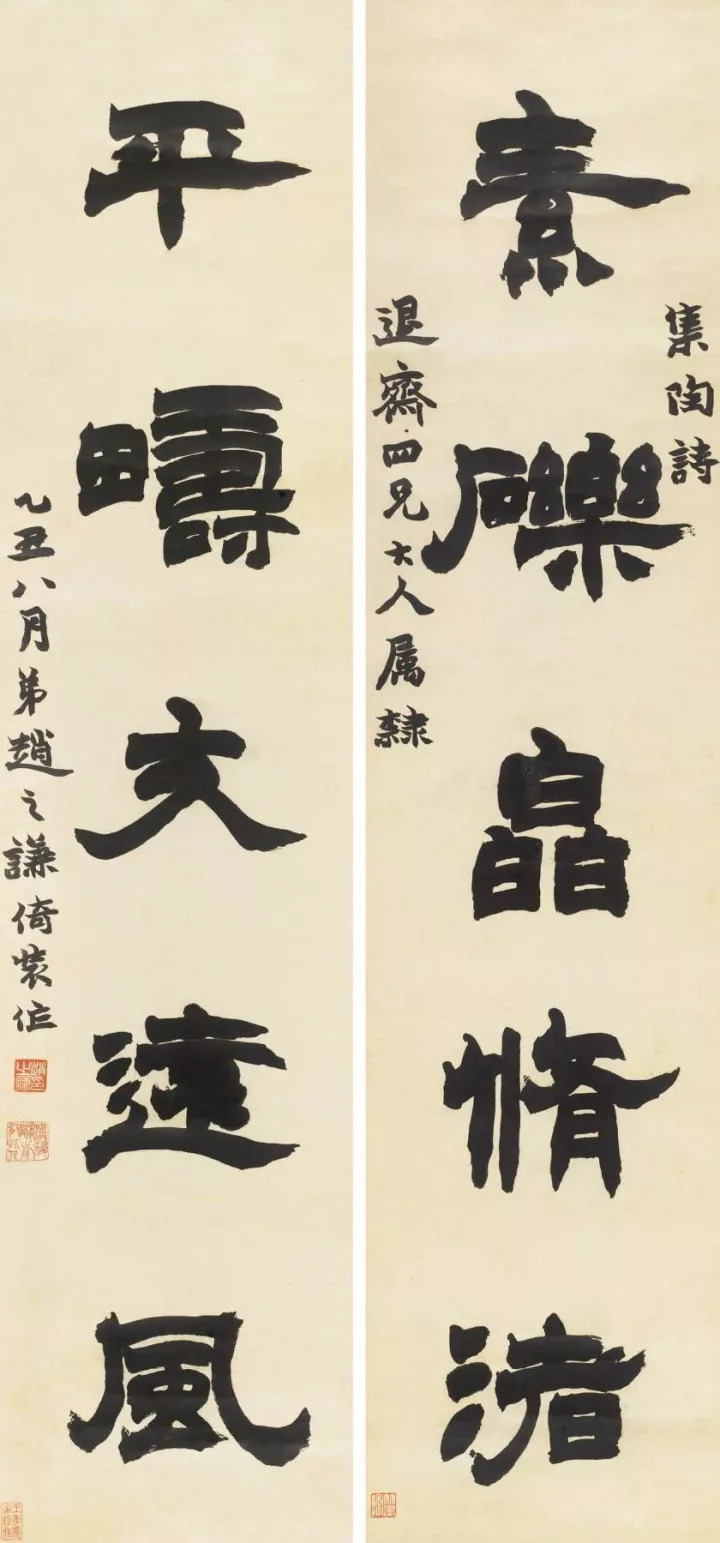 集陶詩
素礫皛脩渚
退齋四兄大人属隸
平疇交遠風
乙丑八月弟趙之謙倚裝作